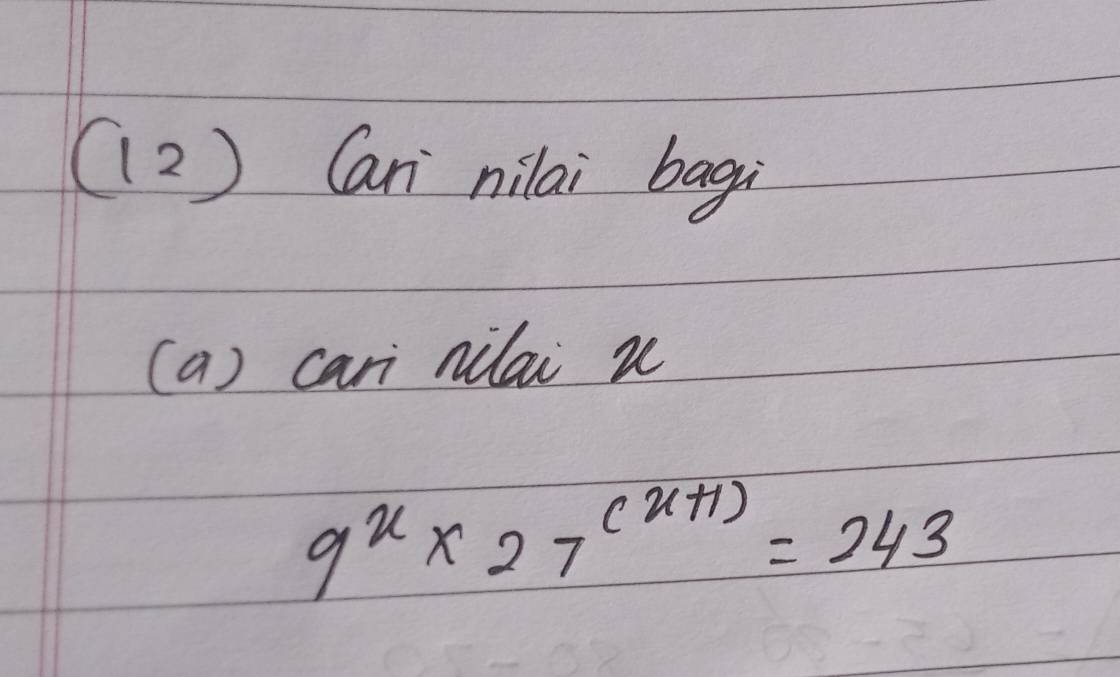 (12) Cari nilai bagi
(a) cari nilai x
9^x × 27^(x+1) = 243